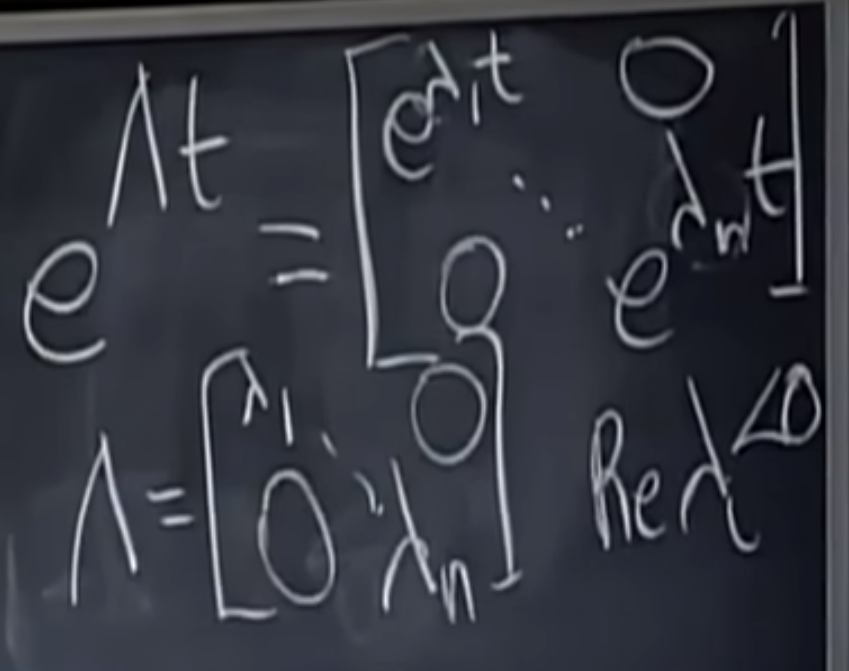 e^{Λt} = [e^{λ₁t} 0
⋱
0 e^{λₙt}]
Λ = [λ₁ 0
⋱
0 λₙ] Re λ < 0